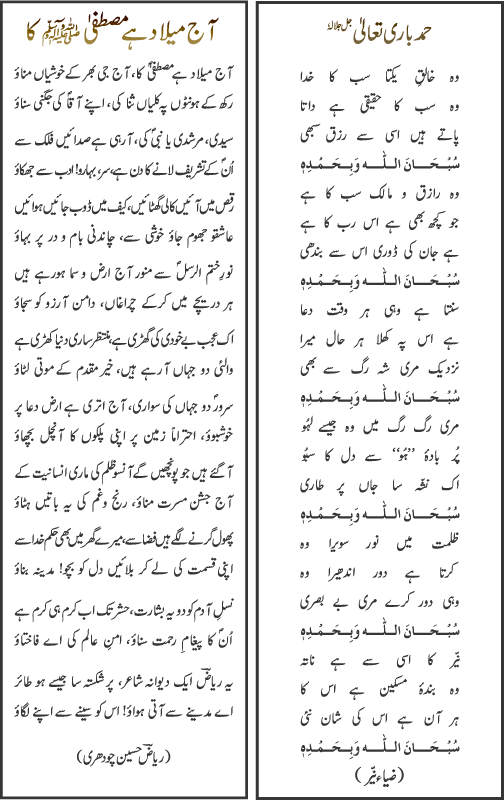 حمد باری تعالیٰ جل جلالہٗ
وہ خالقِ یکتا سب کا خدا
وہ سب کا حقیقی ہے داتا
پاتے ہیں اسی سے رزق سبھی
سُبْحَانَ اللّٰہِ وَبِحَمْدِہٖ
وہ رازق و مالک سب کا ہے
جو کچھ بھی ہے اس رب کا ہے
ہے جان کی ڈوری اس سے بندھی
سُبْحَانَ اللّٰہِ وَبِحَمْدِہٖ
سنتا ہے وہی ہر وقت دعا
ہے اس پہ کھلا ہر حال میرا
نزدیک مری شہ رگ سے بھی
سُبْحَانَ اللّٰہِ وَبِحَمْدِہٖ
مری رگ رگ میں وہ جیسے لہُو
پُر بادۂ ’’ہُو‘‘ سے دل کا سبُو
اک نشّہ سا جاں پر طاری
سُبْحَانَ اللّٰہِ وَبِحَمْدِہٖ
ظلمت میں نور سویرا وہ
کرتا ہے دور اندھیرا وہ
وہی دور کرے مری بے بصری
سُبْحَانَ اللّٰہِ وَبِحَمْدِہٖ
نیّر کا اسی سے ہے ناتہ
وہ بندۂ مسکین ہے اس کا
ہر آن ہے اس کی شان نئی
سُبْحَانَ اللّٰہِ وَبِحَمْدِہٖ
(ضیاء نیّر)
آج میلاد ہے مصطفیٰ ﷺ کا
آج میلاد ہے مصطفیٰؐ کا، آج جی بھر کے خوشیاں مناؤ
رکھ کے ہونٹوں پہ کلیاں ثنا کی، اپنے آقاؐ کی جگنی سناؤ
سیدی، مرشدی یا نبیؐ کی، آ رہی ہے صدائیں فلک سے
اُنؐ کے تشریف لانے کا دن ہے، سر، بہارو! ادب سے جھکاؤ
رقص میں آئیں کالی گھٹائیں، کیف میں ڈوب جائیں ہوائیں
عاشقو جھوم جاؤ خوشی سے، چاندنی بام و در پر بہاؤ
نورِ ختم الرسلؐ سے منور آج ارض و سما ہو رہے ہیں
ہر دریچے میں کرکے چراغاں، دامنِ آرزو کو سجاؤ
اک عجب بے خودی کی گھڑی ہے، منتظر ساری دنیا کھڑی ہے
والئی دو جہاں آرہے ہیں، خیر مقدم کے موتی لٹاؤ
سرورِؐ دو جہاں کی سواری، آج اتری ہے ارضِ دعا پر
خوشبوؤ، احتراماً زمیں پر اپنی پلکوں کا آنچل بچھاؤ
آگئے ہیں جو پونچھیں گے آنسو ظلم کی ماری انسانیت کے
آج جشنِ مسرت مناؤ، رنج و غم کی یہ باتیں ہٹاؤ
پھول گرنے لگے ہیں فضا سے، میرے گھر میں بھی حکمِ خدا سے
اپنی قسمت کی لے کر بلائیں دل کو بچو! مدینہ بناؤ
نسلِ آدم کو دو یہ بشارت، حشر تک اب کرم ہی کرم ہے
اُنؐ کا پیغامِ رحمت سناؤ، امنِ عالم کی اے فاختاؤ
یہ ریاضؔ ایک دیوانہ شاعر، پر شکستہ سا جیسے ہو طائر
اے مدینے سے آتی ہواؤ! اس کو سینے سے اپنے لگاؤ
(ریاضؔ حسین چودھری)